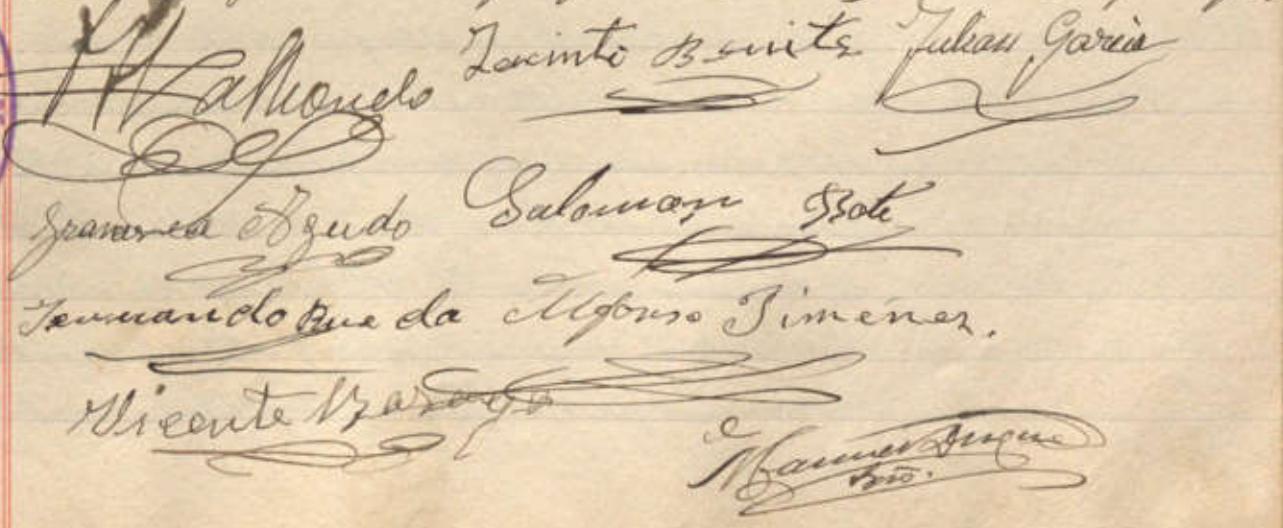 Valhondo Jacinto Benito Julian Garcia
Agudo Salomon Bote
Fernando Rueda Alfonso Jimenez.
Vicente
Manuel Duque
Srio.